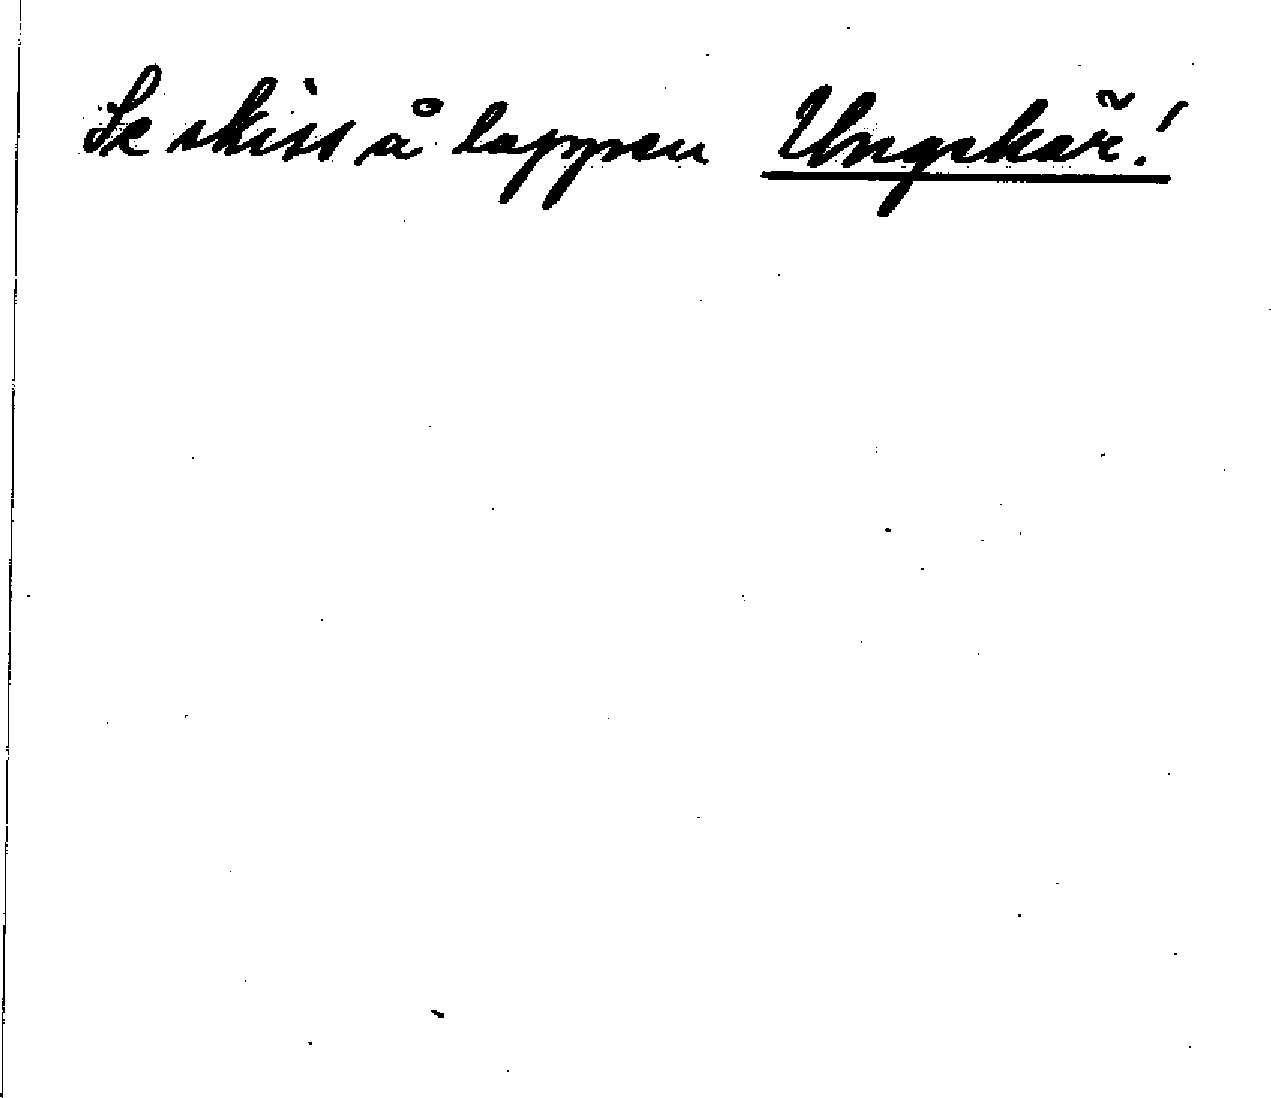 Se skiss å lappen Ungskär!